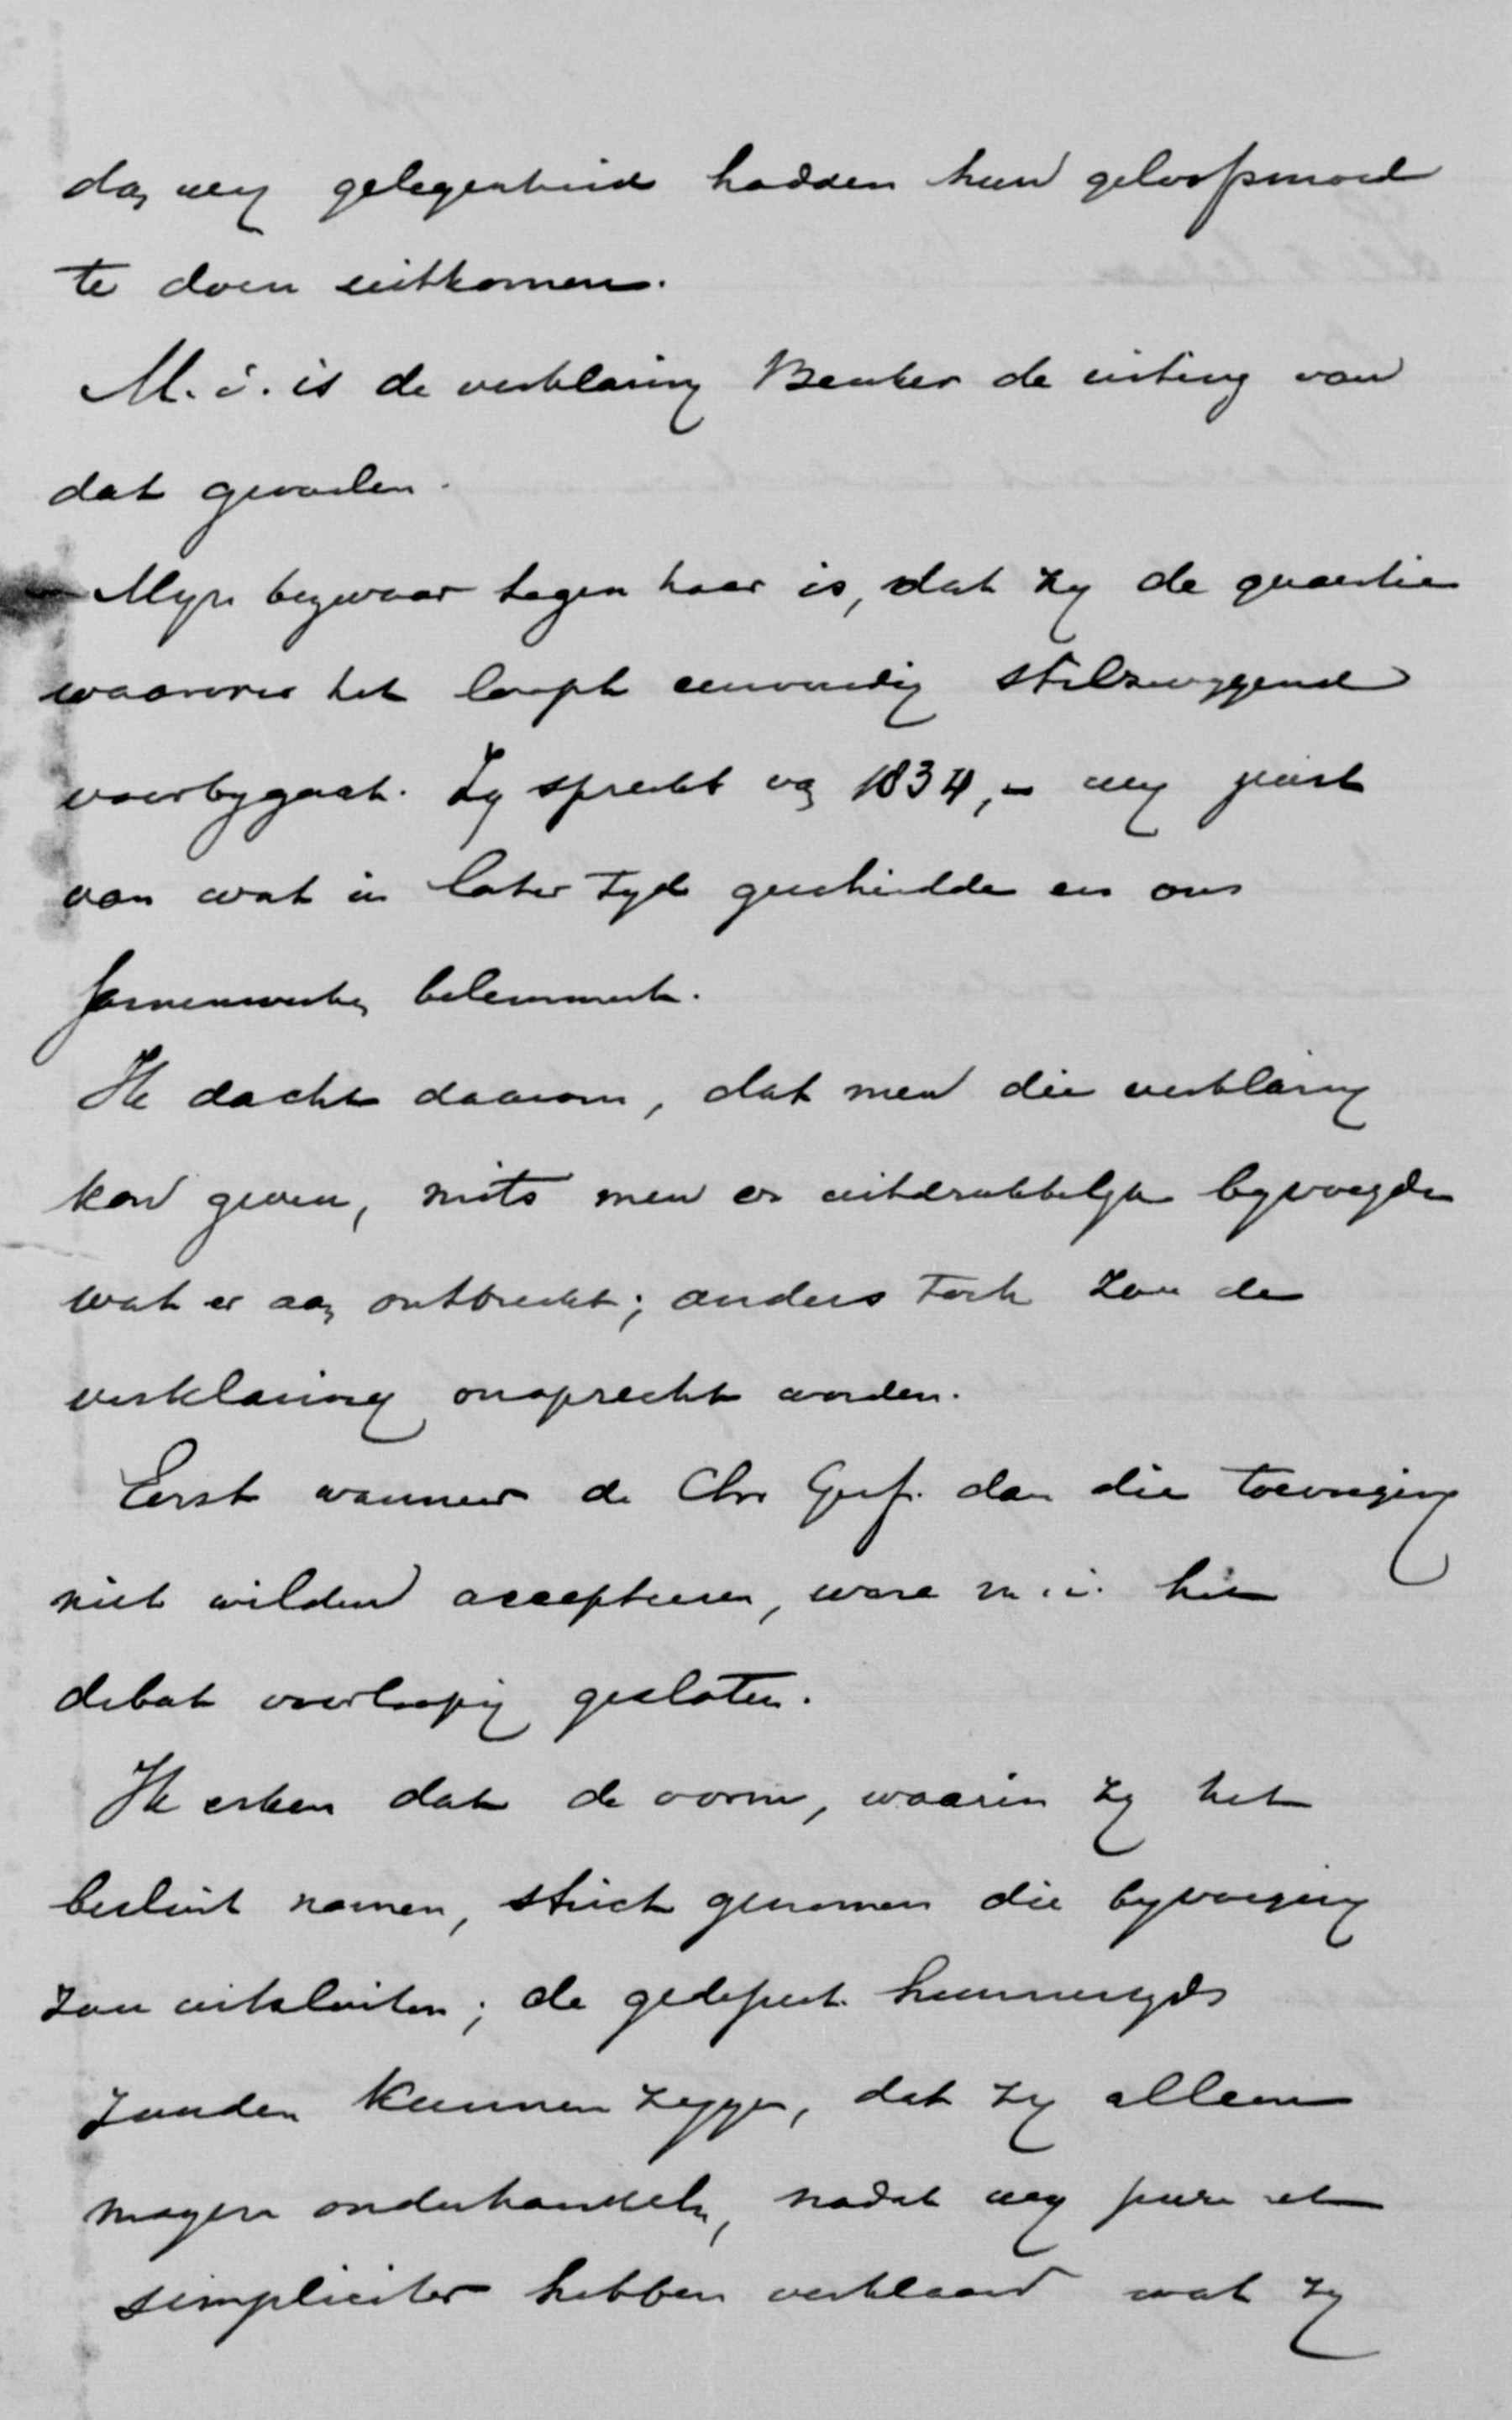 dan wy gelegenheid hadden hun geloofsmoed
te doen uitkomen.
M. i. is de verklaring Beuker de uiting van
dat gevoelen.
Myn bezwaar tegen haar is, dat zy de quaestie
waarover het loopt eenvoudig stilzwygend
voorbygaat. Zy spreekt van 1834, - wy juist
van wat in later tyd geschiedde en ons
samenwerken belemmert.
Ik dacht daarom, dat men die verklaring
kon geven, mits men er uitdrukkelyk byvoegde
wat er aan ontbreekt; anders toch zou de
verklaring onoprecht worden.
Eerst wanneer de Chr Geref. dan die toevoeging
niet wilden accepteeren, ware m. i. het
debat voorloopig gesloten.
Ik erken dat de vorm, waarin zy het
besluit namen, strict genomen die byvoeging
zou uitsluiten; de gedeput. hunnerzyds
zouden kunnen zeggen, dat zy alleen
mogen onderhandelen, nadat wy pure et
simpliciter hebben verklaard wat zy